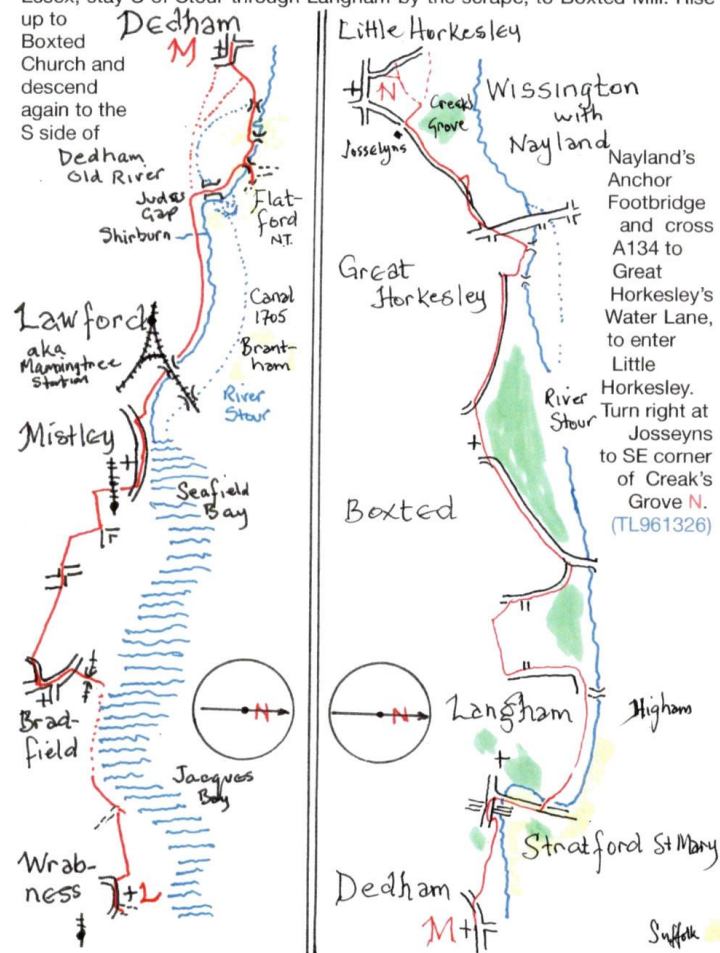 Essex, stay S of Stour through Langham by the scrape, to Boxted Mill. Rise
up to
Boxted
Church and
descend
again to the
S side of
Dedham
M
Dedham
Old River
Judas
Gap
Shirburn
Flat-
ford
N.T.
Canal
1705
Lawford
aka
Manningtree
Station
Brant-
ham
River
Stour
Mistley
Seafield
Bay
N
Brad-
field
Jacques
Bay
Wrab-
ness
L
Little Horkesley
N
Creaks
Grove
Josselyns
Wissington
with
Nayland
Nayland's
Anchor
Footbridge
and cross
A134 to
Great
Horkesley's
Water Lane,
to enter
Little
Horkesley.
Turn right at
Josseyns
to SE corner
of Creak's
Grove N.
(TL961326)
Great
Horkesley
River
Stour
Boxted
N
Langham
Higham
Stratford St Mary
Dedham
M
Suffolk